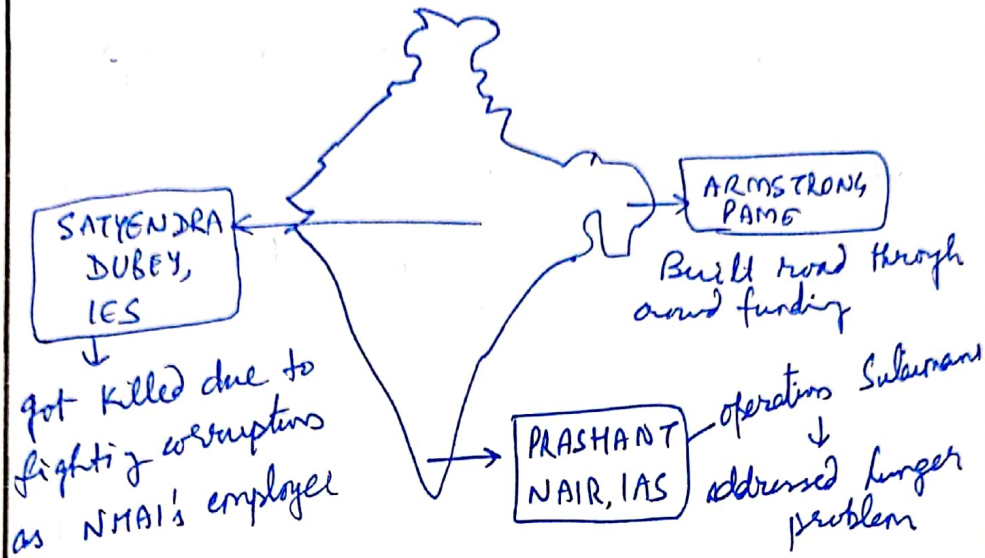 SATYENDRA
DUBEY,
IES
got killed due to
fighting corruptions
as NHAI's employee
ARMSTRONG
PAME
Built road through
crowd funding
PRASHANT
NAIR, IAS
operation Sulaimani
addressed hunger
problem